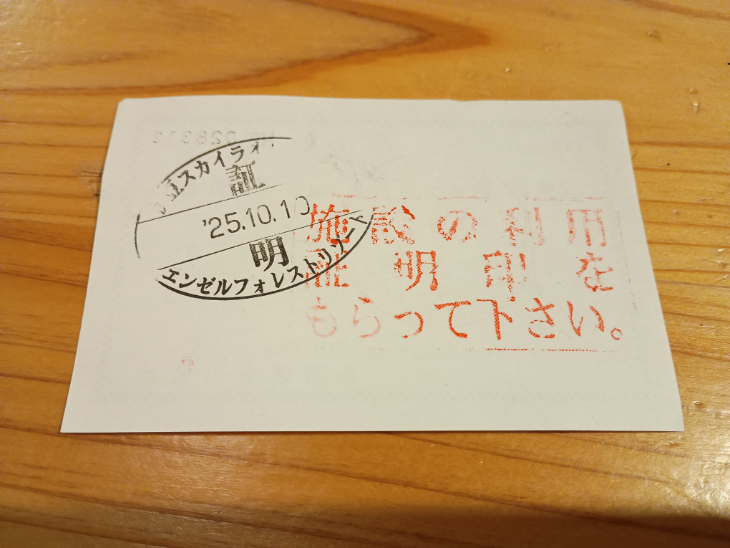 スカイライン
証
'25.10.10
明
エンゼルフォレストリゾート
施設の利用
証明印を
もらって下さい。